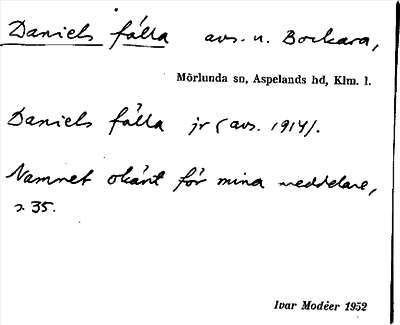 Daniels fälla avs. u. Bockara,
Mörlunda sn, Aspelands hd, Klm. l.
Daniels fälla jr (avs. 1914).
Namnet okänt för mina meddelare,
s. 35.
Ivar Modéer 1952